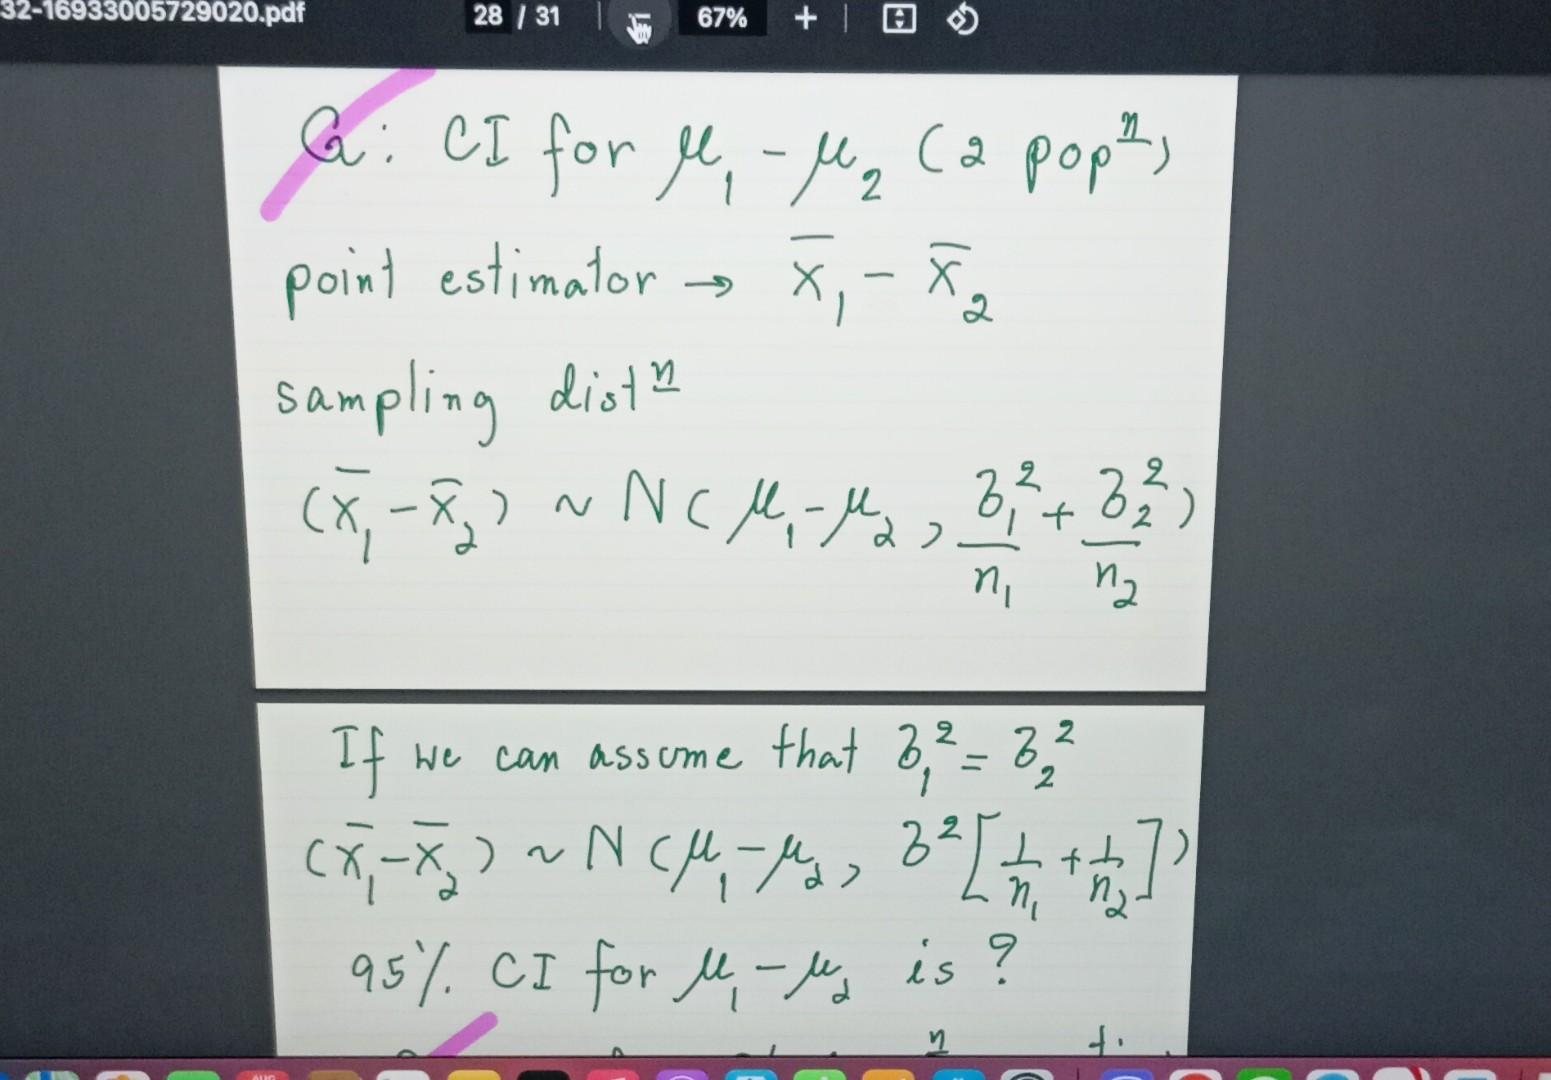 32-16933005729020.pdf 28 / 31 67%
Q: CI for μ₁ - μ₂ (2 popⁿ)
point estimator → x̄₁ - x̄₂
sampling distⁿ
(x̄₁ - x̄₂) ~ N(μ₁ - μ₂, σ₁²/n₁ + σ₂²/n₂)
If we can assume that σ₁² = σ₂²
(x̄₁ - x̄₂) ~ N(μ₁ - μ₂, σ²[1/n₁ + 1/n₂])
95% CI for μ₁ - μ₂ is ?
AUG